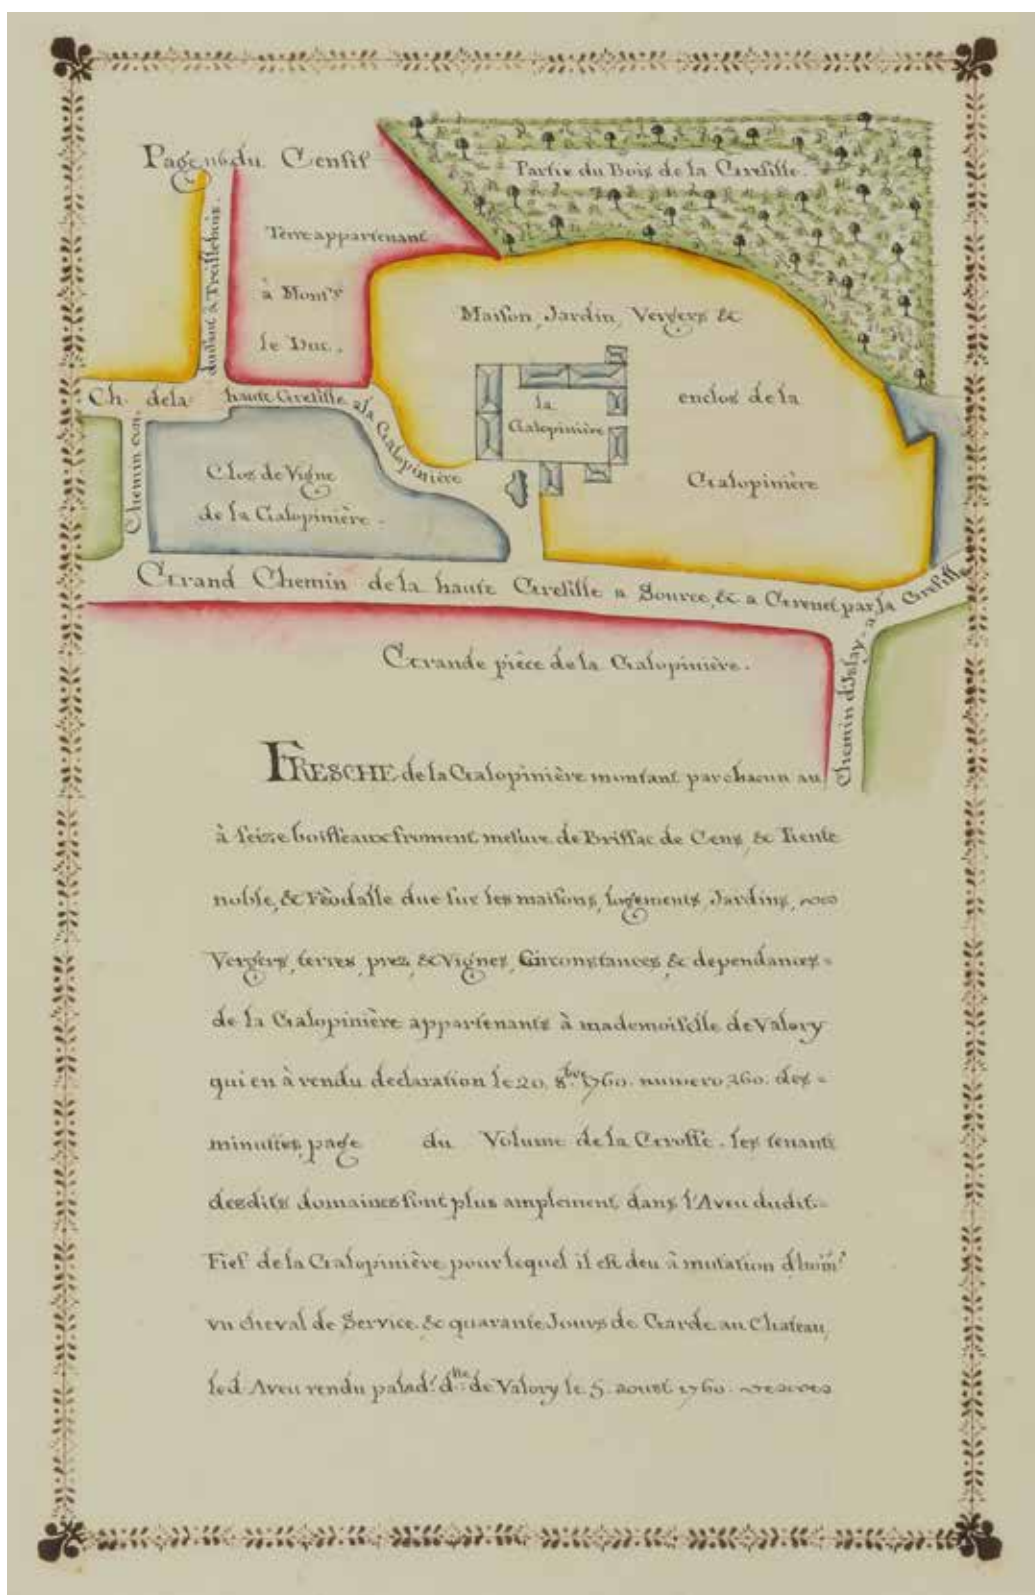 Page 116 du Censif
Partie du Bois de la Gresille.
Terre appartenant
à Mons.r
le Duc.
duduit à Treillebois.
Maison, Jardin, Vergers &
enclos de la
Galopinière
la
Galopinière
Ch. de la haute Gresille a la Galopinière
Chemin
Clos de Vigne
de la Galopinière.
Grand Chemin de la haute Gresille a Source, & a Grenet par la Gresille
Grande pièce de la Galopinière.
Chemin d'Islay a
FRESCHE de la Galopinière montant par chacun an
à seize boisseaux froment mesure de Brissac de Cens, & Rente
noble, & Féodalle due sur les maisons, logements, Jardins,
Vergers, terres, prez, & Vignes, Circonstances, & dependances=
de la Galopinière appartenants à mademoiselle de Valory
qui en à rendu declaration le 20. 8.bre 1760. numero 360. des=
minuttes, page du Volume de la Grosse. les tenants
desdits domaines sont plus amplement dans l'Aveu dudit=
Fief de la Galopinière pour lequel il est deu à mutation d'hom.e
vn cheval de Service & quarante Jours de Garde au Chateau,
led. Aveu rendu par lad.e d.lle de Valory le 5. aoust 1760.